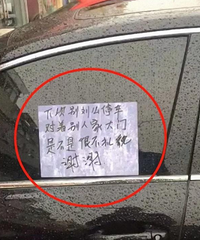 下次别到此停车
对着别人家大门
是不是很不礼貌
谢谢